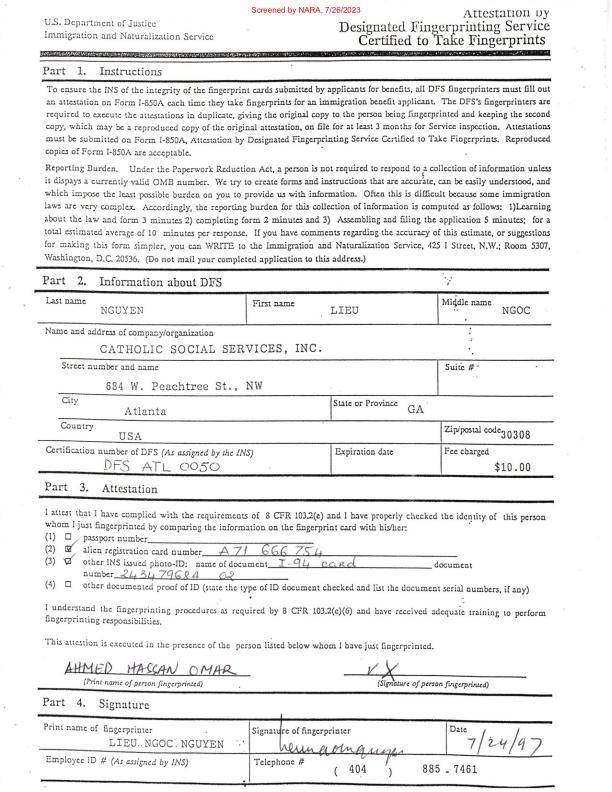 Screened by NARA, 7/26/2023
U.S. Department of Justice
Immigration and Naturalization Service
Attestation by
Designated Fingerprinting Service
Certified to Take Fingerprints
Part 1. Instructions
To ensure the INS of the integrity of the fingerprint cards submitted by applicants for benefits, all DFS fingerprinters must fill out
an attestation on Form I-850A each time they take fingerprints for an immigration benefit applicant. The DFS's fingerprinters are
required to execute the attestations in duplicate, giving the original copy to the person being fingerprinted and keeping the second
copy, which may be a reproduced copy of the original attestation, on file for at least 3 months for Service inspection. Attestations
must be submitted on Form I-850A, Attestation by Designated Fingerprinting Service Certified to Take Fingerprints. Reproduced
copies of Form I-850A are acceptable.
Reporting Burden. Under the Paperwork Reduction Act, a person is not required to respond to a collection of information unless
it dispays a currently valid OMB number. We try to create forms and instructions that are accurate, can be easily understood, and
which impose the least possible burden on you to provide us with information. Often this is difficult because some immigration
laws are very complex. Accordingly, the reporting burden for this collection of information is computed as follows: 1)Learning
about the law and form 3 minutes 2) completing form 2 minutes and 3) Assembling and filing the application 5 minutes; for a
total estimated average of 10 minutes per response. If you have comments regarding the accuracy of this estimate, or suggestions
for making this form simpler, you can WRITE to the Immigration and Naturalization Service, 425 I Street, N.W.; Room 5307,
Washington, D.C. 20536. (Do not mail your completed application to this address.)
Part 2. Information about DFS
Last name First name Middle name
NGUYEN LIEU NGOC
Name and address of company/organization
CATHOLIC SOCIAL SERVICES, INC.
Street number and name Suite #
684 W. Peachtree St., NW
City State or Province
Atlanta GA
Country Zip/postal code
USA 30308
Certification number of DFS (As assigned by the INS) Expiration date Fee charged
DFS ATL 0050 $10.00
Part 3. Attestation
I attest that I have complied with the requirements of 8 CFR 103.2(e) and I have properly checked the identity of this person
whom I just fingerprinted by comparing the information on the fingerprint card with his/her:
(1) passport number
(2) alien registration card number A71 666 754
(3) other INS issued photo-ID: name of document I-94 card document
number 243479684 02
(4) other documented proof of ID (state the type of ID document checked and list the document serial numbers, if any)
I understand the fingerprinting procedures as required by 8 CFR 103.2(e)(6) and have received adequate training to perform
fingerprinting responsibilities.
This attestion is executed in the presence of the person listed below whom I have just fingerprinted.
AHMED HASSAN OMAR V X
(Print name of person fingerprinted) (Signature of person fingerprinted)
Part 4. Signature
Print name of fingerprinter Signature of fingerprinter Date
LIEU NGOC NGUYEN 7/24/97
Employee ID # (As assigned by INS) Telephone #
( 404 ) 885 - 7461